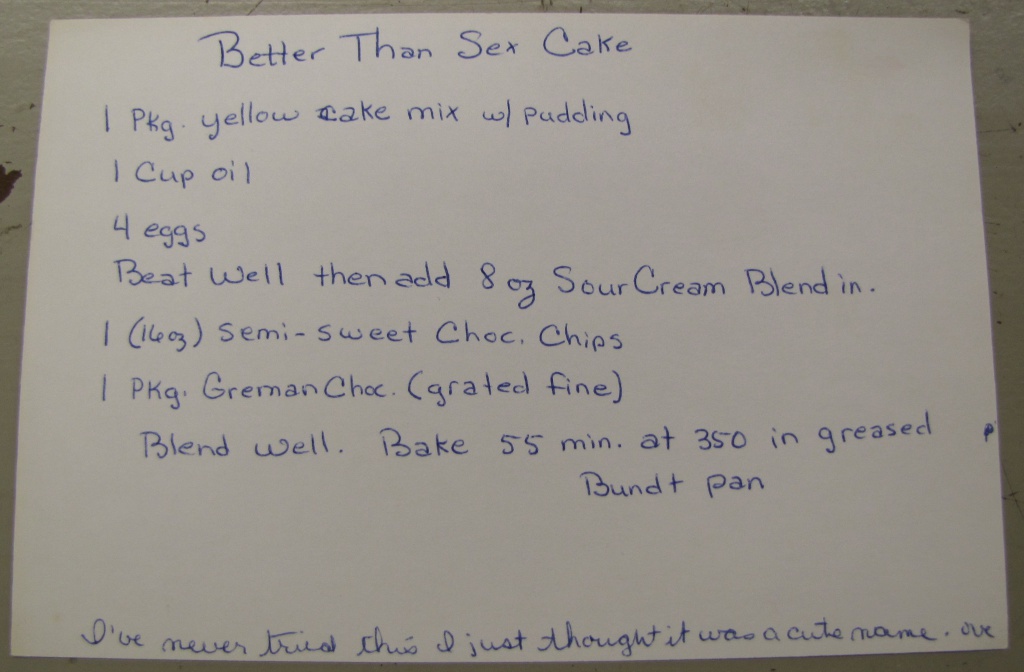 Better Than Sex Cake
1 Pkg. yellow cake mix w/ pudding
1 Cup oil
4 eggs
Beat well then add 8 oz Sour Cream Blend in.
1 (16oz) Semi-sweet Choc. Chips
1 Pkg. Greman Choc. (grated fine)
Blend well. Bake 55 min. at 350 in greased
Bundt pan
I've never tried this I just thought it was a cute name.